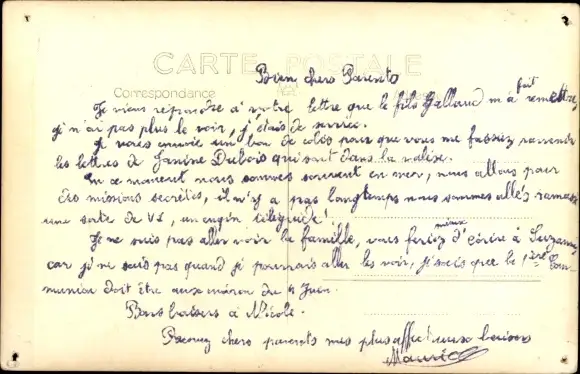 CARTE POSTALE
Bien chers Parents
Correspondance
Je viens répondre à votre lettre que le fils Galland m'a fait remettre,
je n'ai pas plus le voir, j'étais de service.
Je vous envoie un bon de colis pour que vous me fassiez parvenir
les lettres de Janine Dubois qui sont dans la valise.
En ce moment nous sommes souvent en mer, nous allons pour
des missions secrètes, il n'y a pas longtemps nous sommes allés ramasser
une sorte de V1, un engin téléguidé!
Je ne suis pas aller voir la famille, vous feriez mieux d'écrire à Suzanne
car je ne sais pas quand je pourrais aller les voir, je sais que la 1ère Com
munion doit être aux environ de 4 Juin.
Bons baisers à Nicole.
Recevez chers parents mes plus affectueux baisers
Maurice